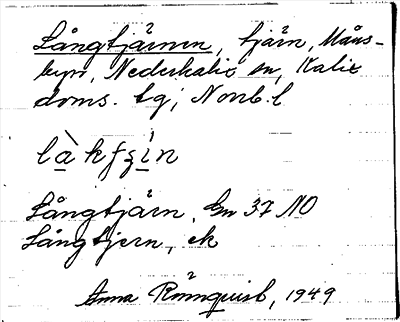 Långtjärnen, tjärn, Måns-
byn, Nederkalix sn, Kalix
doms. tg; Norrb. l
Långtjärn, Gn 37 NO
Långtjern, ek
Anna Rönnquist, 1949